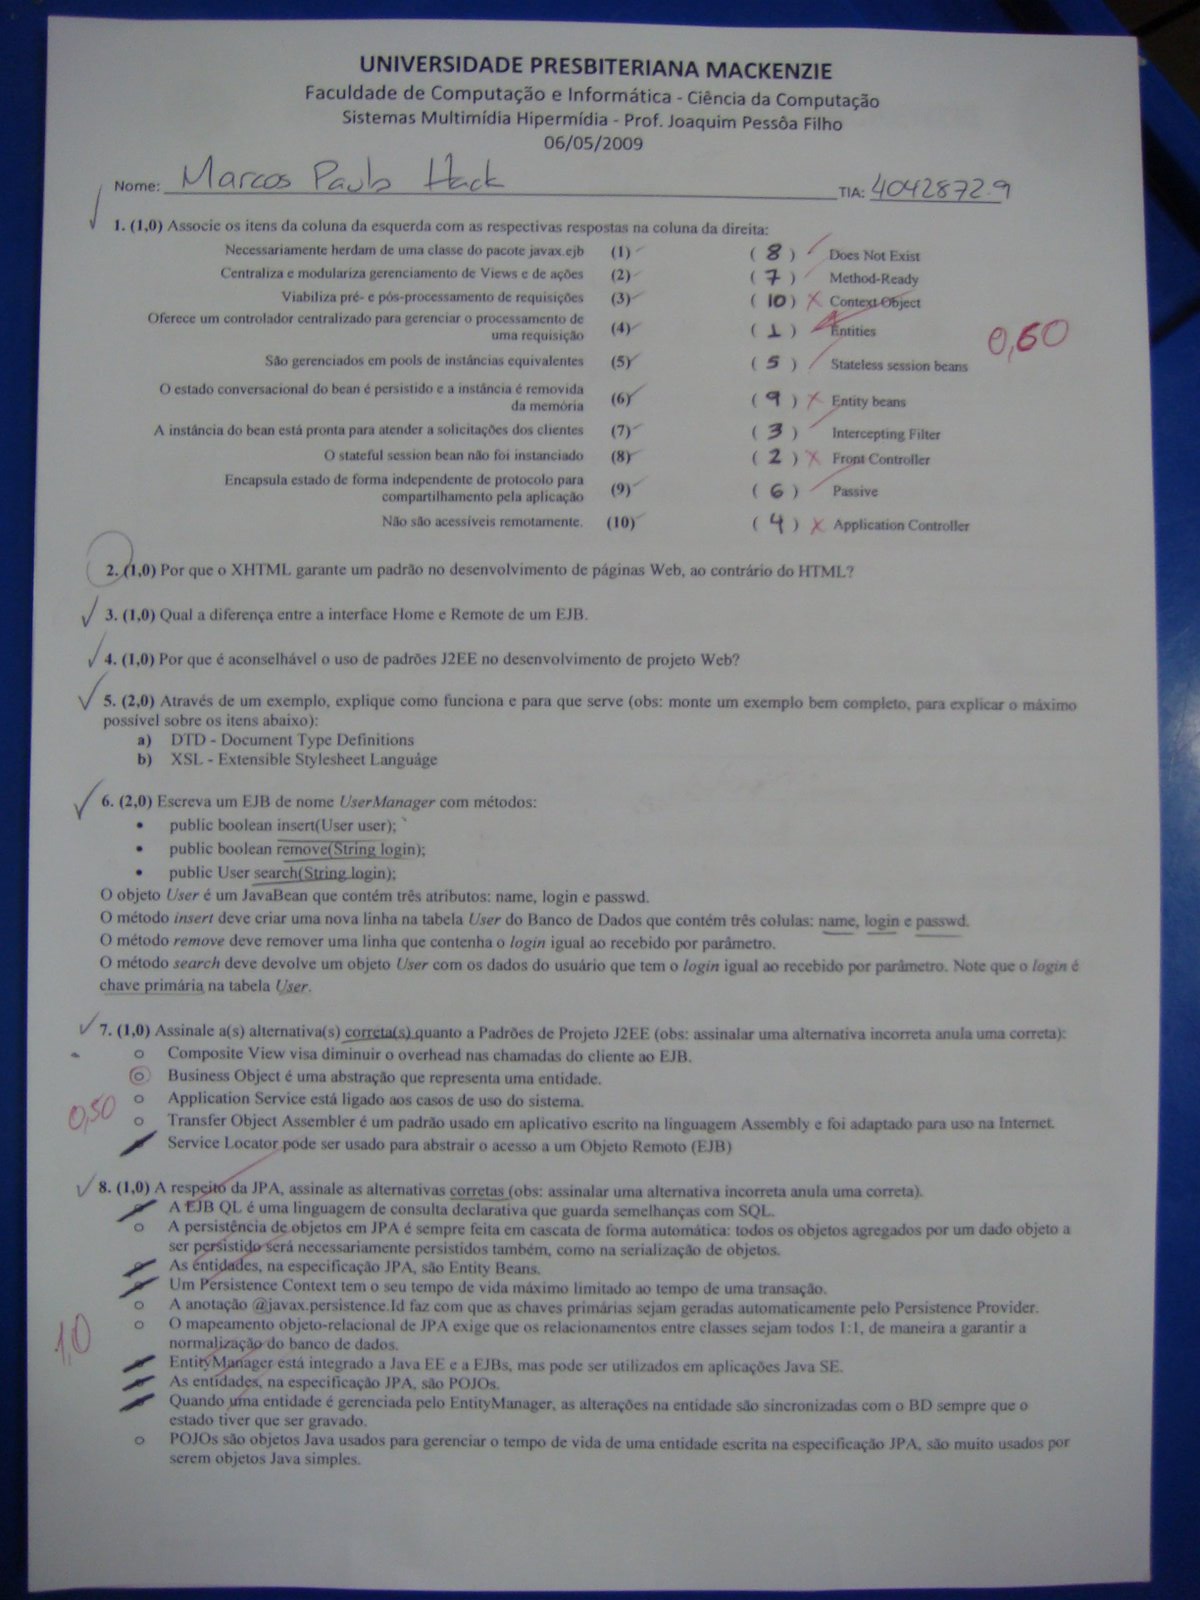 UNIVERSIDADE PRESBITERIANA MACKENZIE
Faculdade de Computação e Informática - Ciência da Computação
Sistemas Multimídia Hipermídia - Prof. Joaquim Pessôa Filho
06/05/2009
Nome: Marcos Paulo Hack TIA: 4042872.9
1. (1,0) Associe os itens da coluna da esquerda com as respectivas respostas na coluna da direita:
Necessariamente herdam de uma classe do pacote javax.ejb (1) ( 8 ) Does Not Exist
Centraliza e modulariza gerenciamento de Views e de ações (2) ( 7 ) Method-Ready
Viabiliza pré- e pós-processamento de requisições (3) ( 10 ) Context Object
Oferece um controlador centralizado para gerenciar o processamento de
uma requisição (4) ( 1 ) Entities
0,60
São gerenciados em pools de instâncias equivalentes (5) ( 5 ) Stateless session beans
O estado conversacional do bean é persistido e a instância é removida
da memória (6) ( 9 ) Entity beans
A instância do bean está pronta para atender a solicitações dos clientes (7) ( 3 ) Intercepting Filter
O stateful session bean não foi instanciado (8) ( 2 ) Front Controller
Encapsula estado de forma independente de protocolo para
compartilhamento pela aplicação (9) ( 6 ) Passive
Não são acessíveis remotamente. (10) ( 4 ) Application Controller
2. (1,0) Por que o XHTML garante um padrão no desenvolvimento de páginas Web, ao contrário do HTML?
3. (1,0) Qual a diferença entre a interface Home e Remote de um EJB.
4. (1,0) Por que é aconselhável o uso de padrões J2EE no desenvolvimento de projeto Web?
5. (2,0) Através de um exemplo, explique como funciona e para que serve (obs: monte um exemplo bem completo, para explicar o máximo
possível sobre os itens abaixo):
a) DTD - Document Type Definitions
b) XSL - Extensible Stylesheet Languáge
6. (2,0) Escreva um EJB de nome UserManager com métodos:
• public boolean insert(User user);
• public boolean remove(String login);
• public User search(String login);
O objeto User é um JavaBean que contém três atributos: name, login e passwd.
O método insert deve criar uma nova linha na tabela User do Banco de Dados que contém três colulas: name, login e passwd.
O método remove deve remover uma linha que contenha o login igual ao recebido por parâmetro.
O método search deve devolve um objeto User com os dados do usuário que tem o login igual ao recebido por parâmetro. Note que o login é
chave primária na tabela User.
7. (1,0) Assinale a(s) alternativa(s) correta(s) quanto a Padrões de Projeto J2EE (obs: assinalar uma alternativa incorreta anula uma correta):
o Composite View visa diminuir o overhead nas chamadas do cliente ao EJB.
o Business Object é uma abstração que representa uma entidade.
o Application Service está ligado aos casos de uso do sistema.
0,50
o Transfer Object Assembler é um padrão usado em aplicativo escrito na linguagem Assembly e foi adaptado para uso na Internet.
o Service Locator pode ser usado para abstrair o acesso a um Objeto Remoto (EJB)
8. (1,0) A respeito da JPA, assinale as alternativas corretas (obs: assinalar uma alternativa incorreta anula uma correta).
o A EJB QL é uma linguagem de consulta declarativa que guarda semelhanças com SQL.
o A persistência de objetos em JPA é sempre feita em cascata de forma automática: todos os objetos agregados por um dado objeto a
ser persistido será necessariamente persistidos também, como na serialização de objetos.
o As entidades, na especificação JPA, são Entity Beans.
o Um Persistence Context tem o seu tempo de vida máximo limitado ao tempo de uma transação.
o A anotação @javax.persistence.Id faz com que as chaves primárias sejam geradas automaticamente pelo Persistence Provider.
o O mapeamento objeto-relacional de JPA exige que os relacionamentos entre classes sejam todos 1:1, de maneira a garantir a
normalização do banco de dados.
1,0
o EntityManager está integrado a Java EE e a EJBs, mas pode ser utilizados em aplicações Java SE.
o As entidades, na especificação JPA, são POJOs.
o Quando uma entidade é gerenciada pelo EntityManager, as alterações na entidade são sincronizadas com o BD sempre que o
estado tiver que ser gravado.
o POJOs são objetos Java usados para gerenciar o tempo de vida de uma entidade escrita na especificação JPA, são muito usados por
serem objetos Java simples.